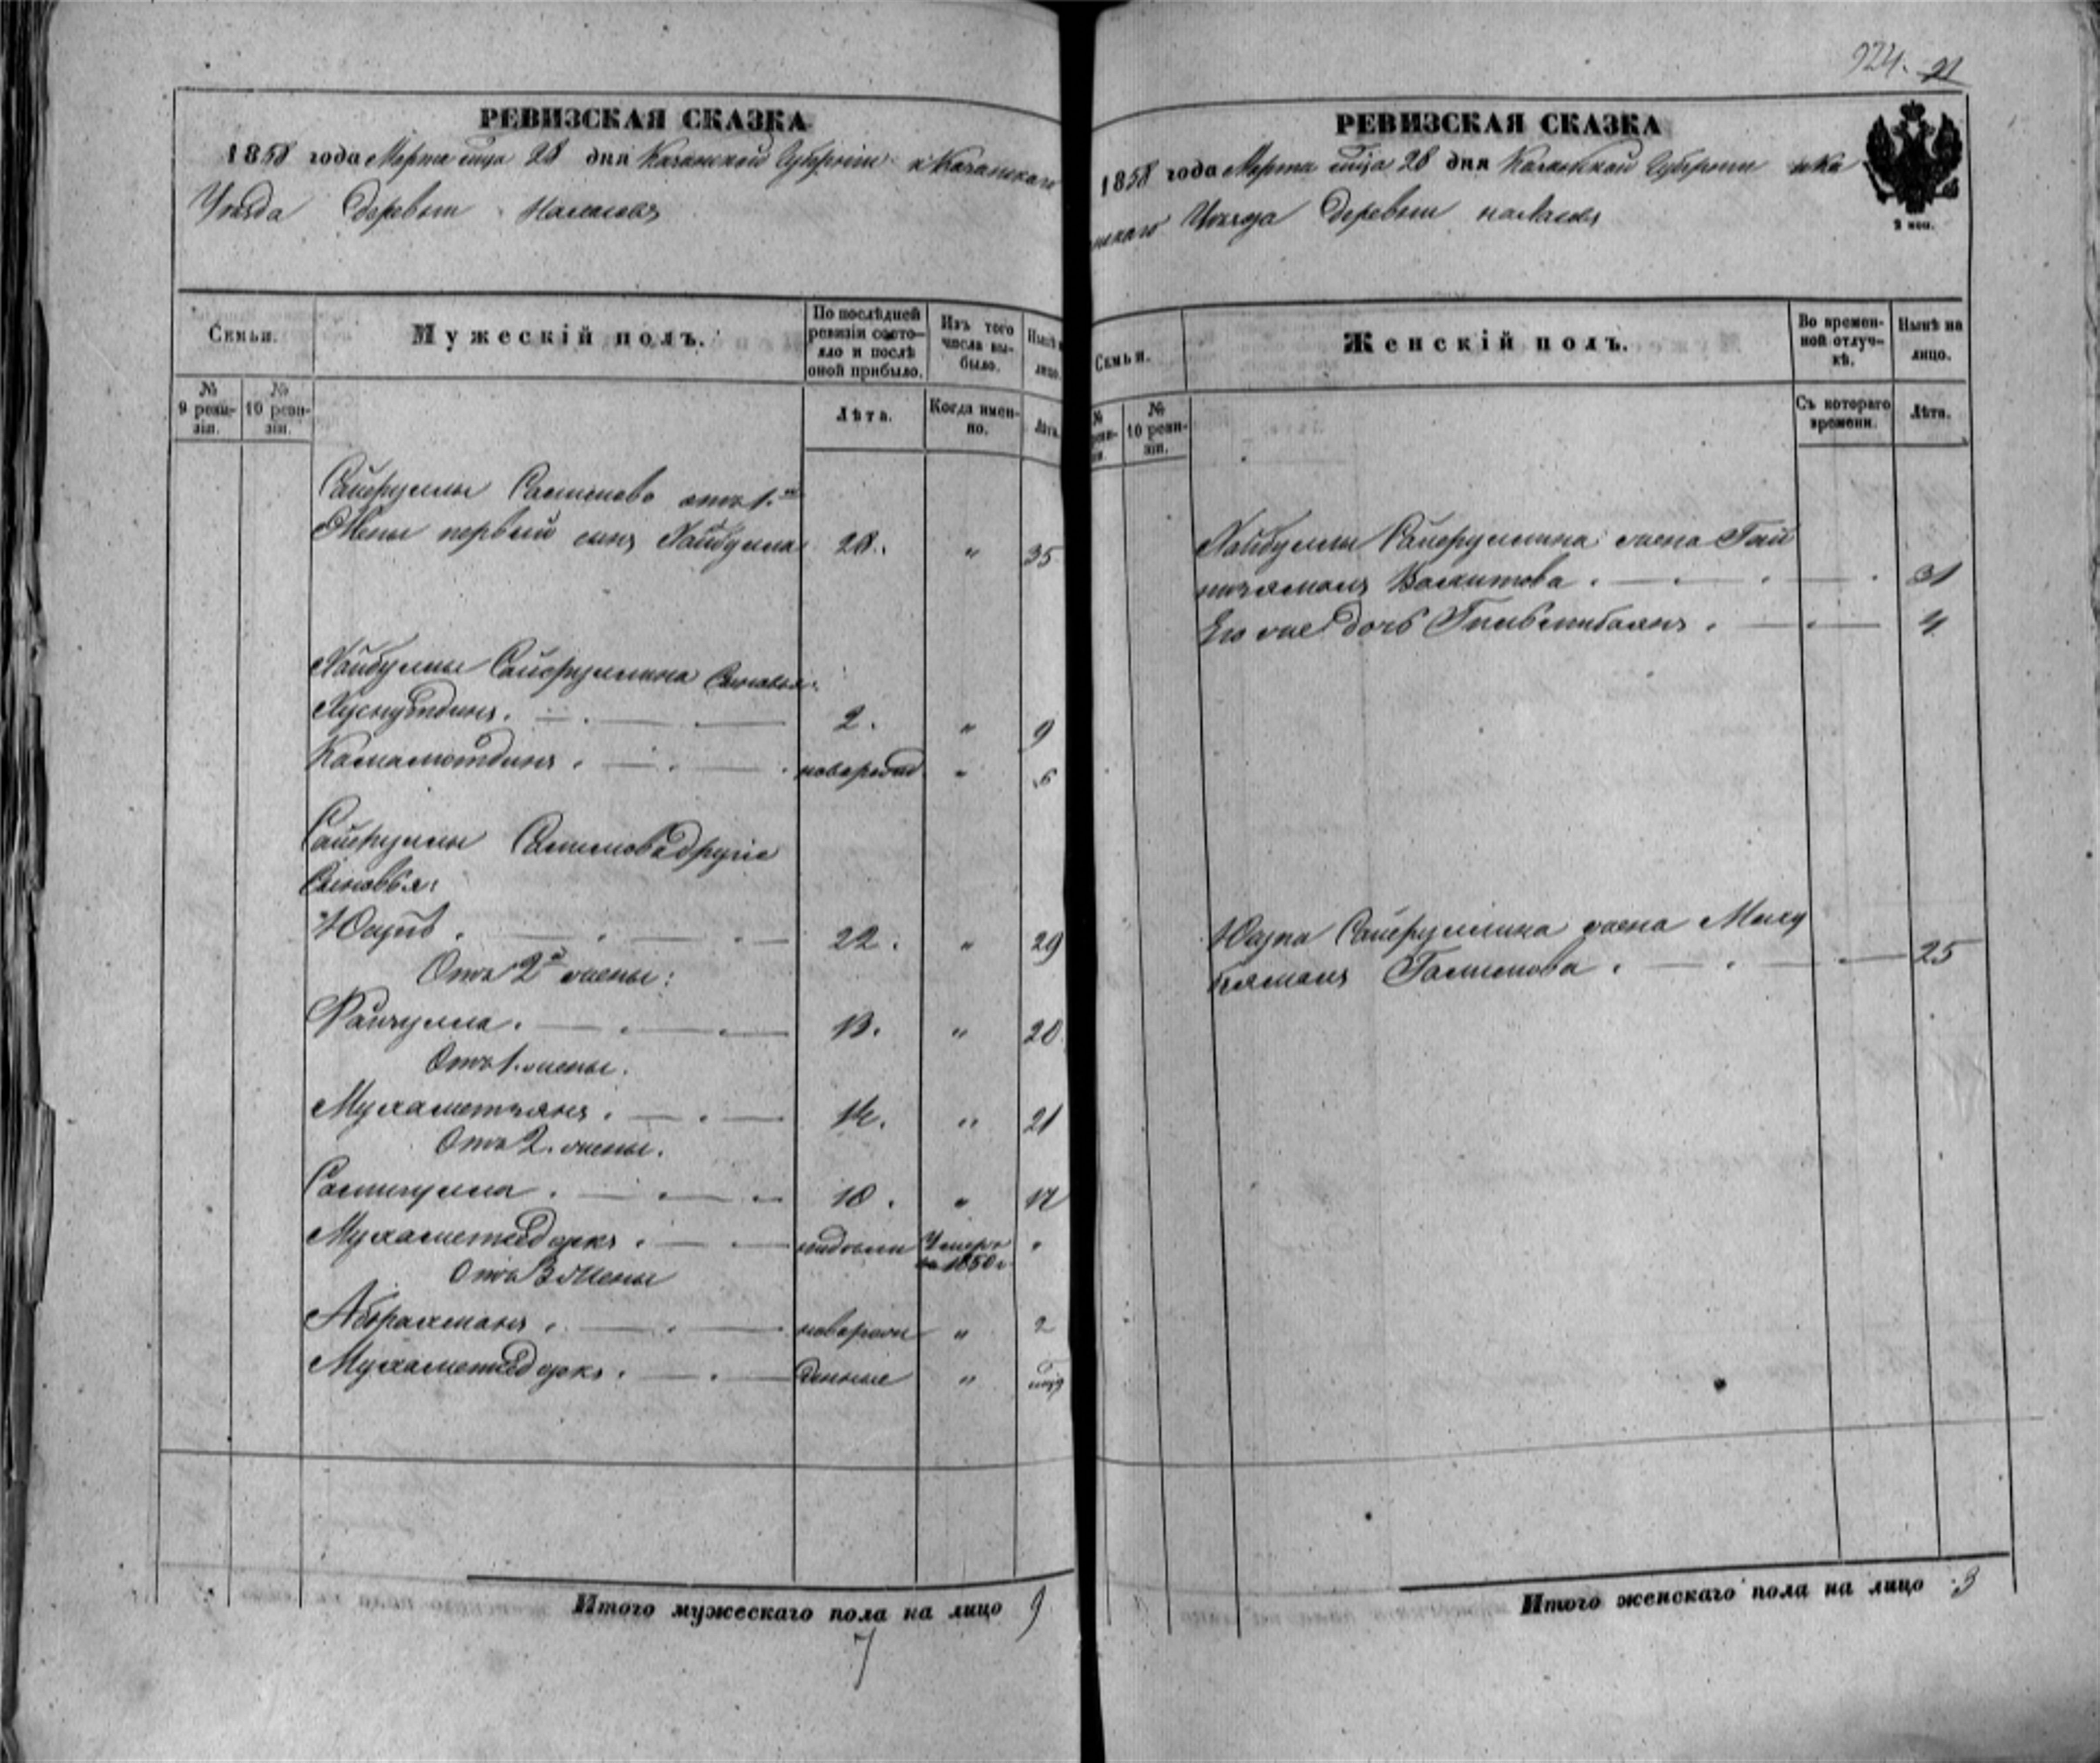 РЕВИЗСКАЯ СКАЗКА
1858 года Марта мца 28 дня Казанской Губернии Казанскаго
Уезда Деревни
Семьи.
Мужескій полъ.
По послѣдней ревизіи состо-яло и послѣ оной прибыло.
Изъ того числа вы-было.
Нынѣ
лицо.
№ 9 реви-зіи.
№ 10 реви-зіи.
Лѣта.
Когда имен-но.
Лѣта.
Сайфуллы Салимова отъ 1-й
Жены первый сынъ Хайбулла 28. " 35
Хайбуллы Сайфуллина Сыновья:
Хуснутдинъ. 2. " 9
Камалютдинъ. новорожд " 6
Сайфуллы Салимова другіе
Сыновья:
Юсупъ. 22. " 29
Отъ 2й жены:
Файзулла. 13. " 20
Отъ 1. жены.
Мухаметзянъ. 14. " 21
Отъ 2. жены.
Салихулла. 10. " 17
Мухаметсадыкъ. Умеръ 1850 г "
Отъ 3 жены
Абрахманъ. новорож " 2
Мухаметсадыкъ. денные "
Итого мужескаго пола на лицо 9
7
924. 21
РЕВИЗСКАЯ СКАЗКА
1858 года Марта мца 28 дня Казанской Губернии Ка
занскаго Уезда Деревни
2 коп.
Семьи.
Женскій полъ.
Во времен-ной отлуч-кѣ.
Нынѣ на лицо.
№
№ 10 реви-зіи.
Съ котораго времени.
Лѣта.
Хайбуллы Сайфуллина жена
Вахитова. 31
Его же дочь 4
Юсупа Сайфуллина жена
Галимова. 25
Итого женскаго пола на лицо 3